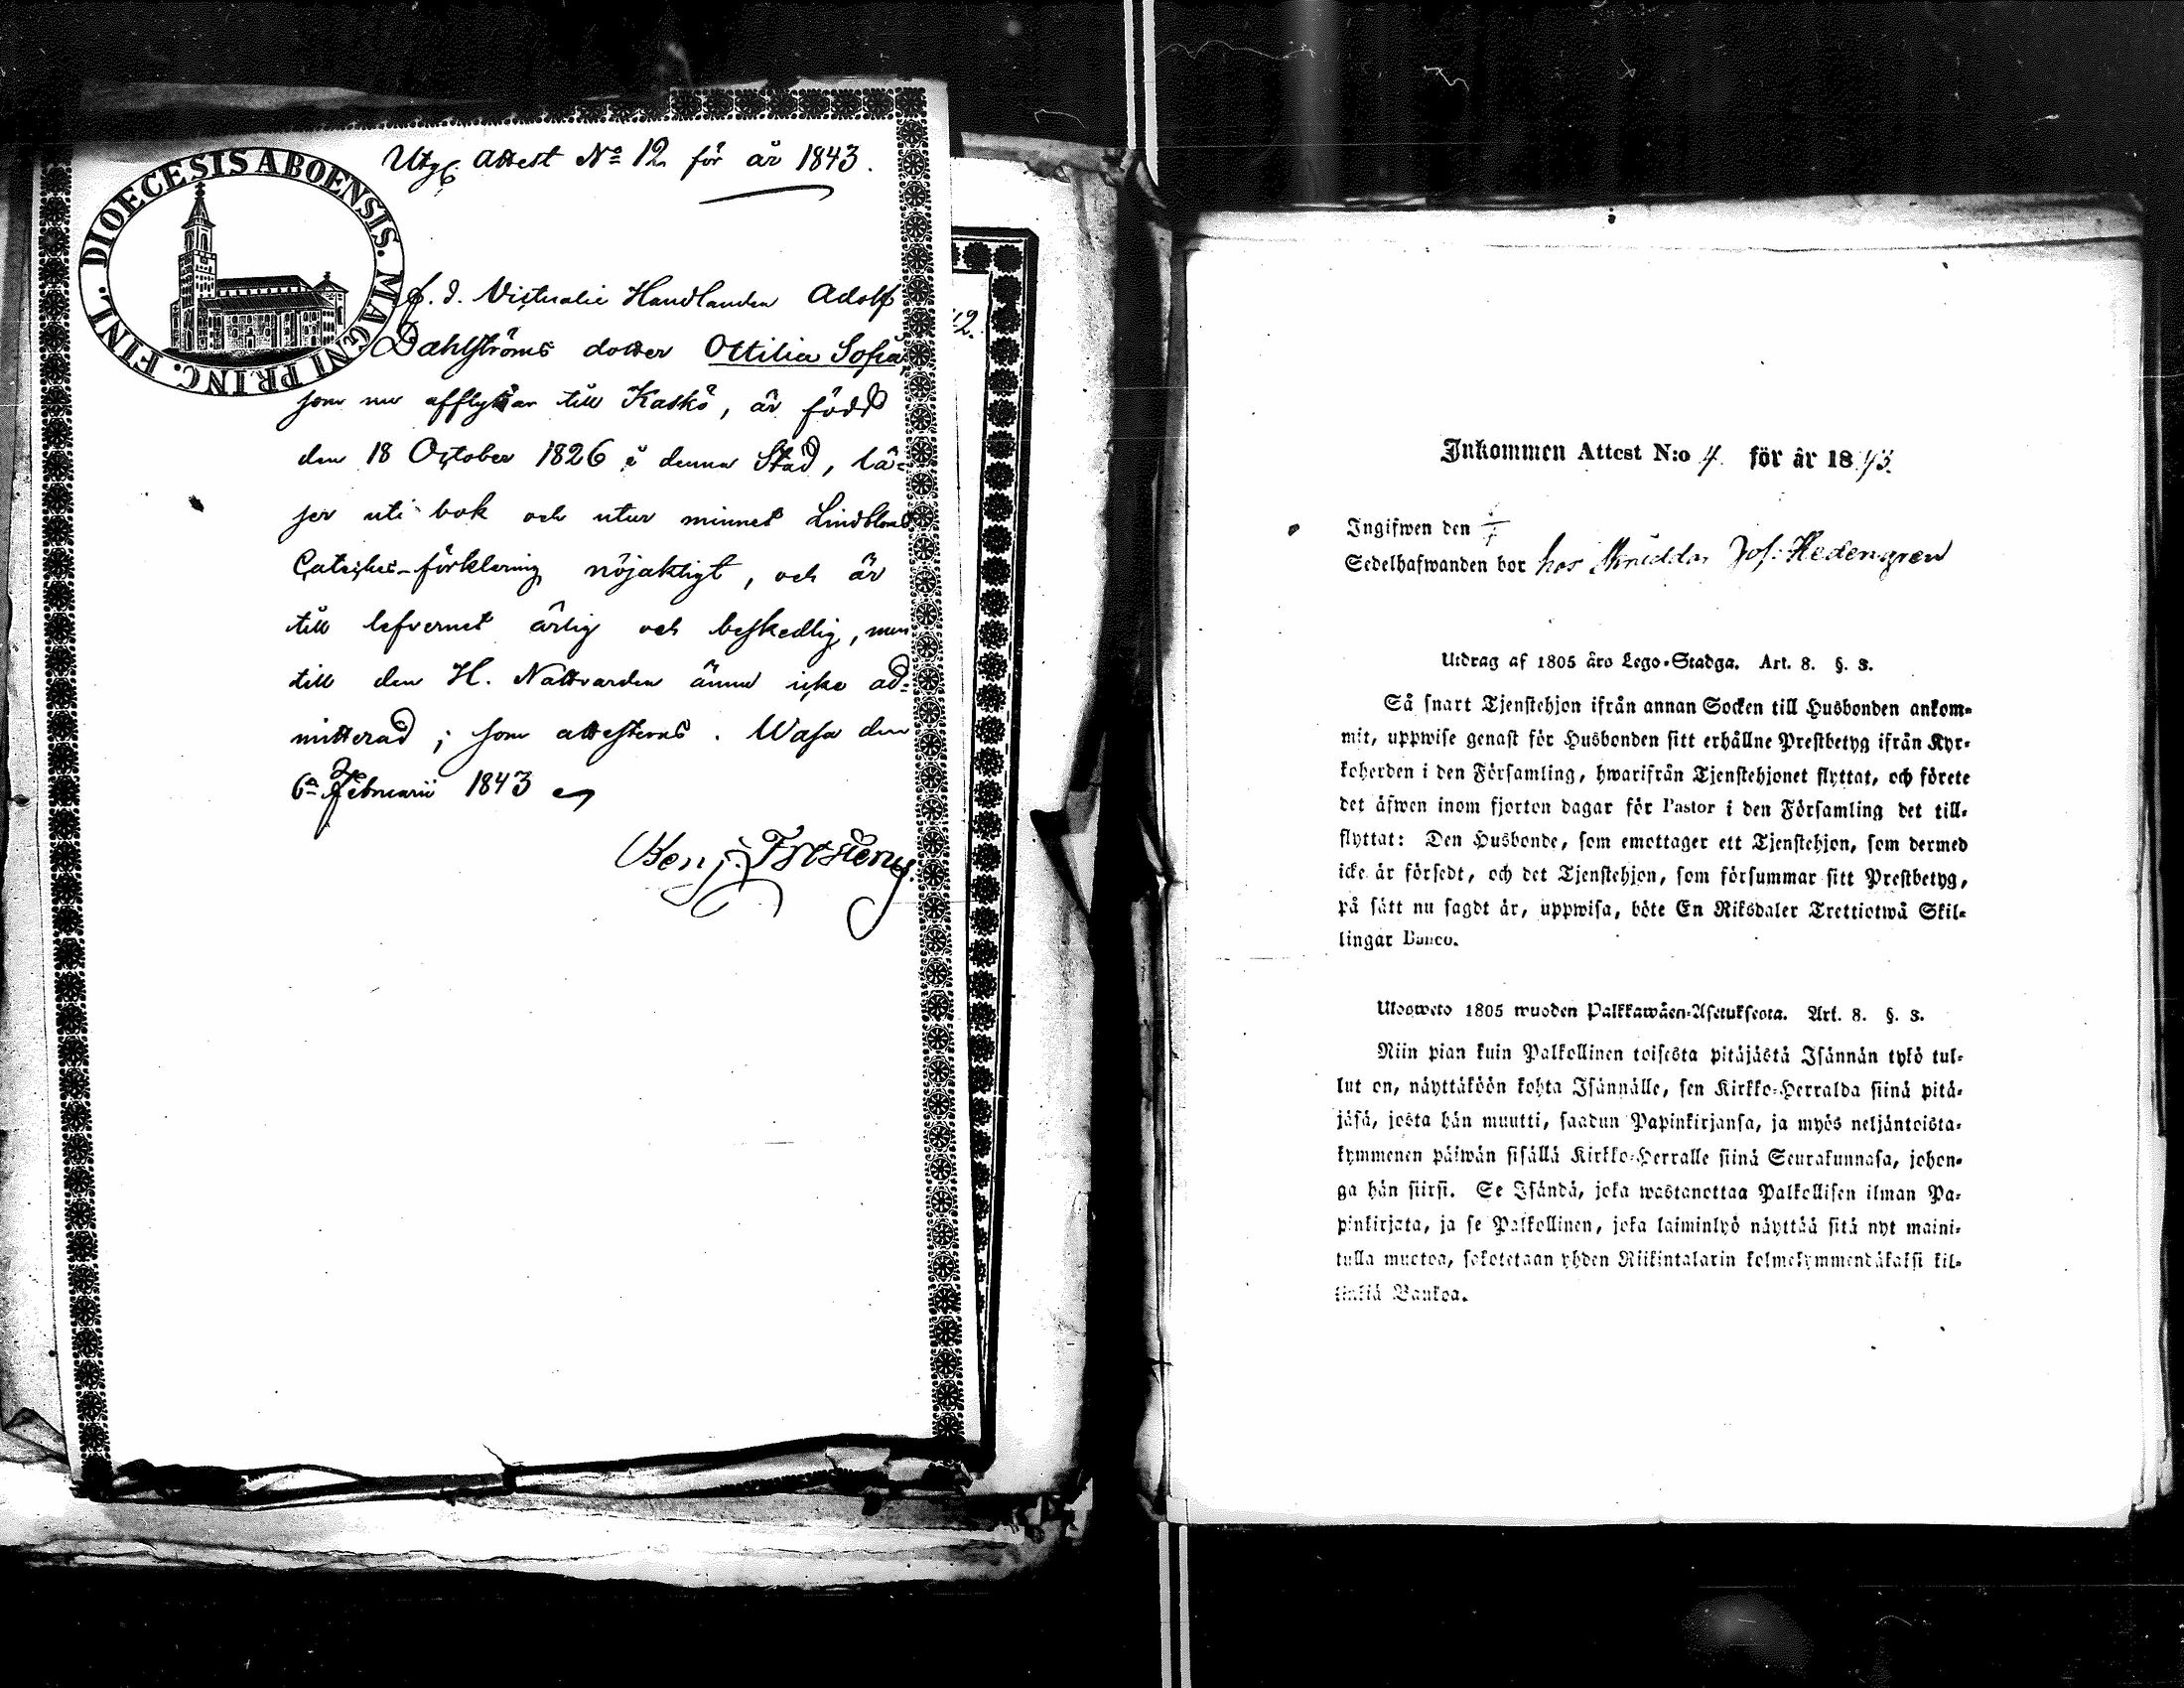 DIOECESIS ABOENSIS. MAGNI PRINC. FINL.
Utg. attest No 12 för år 1843.
f. d. Victualie Handlanden Adolf
Dahlströms dotter Ottilia Sofia,
som nu afflyttar till Kaskö, är född
den 18 October 1826 i denna Stad, lä-
ser uti bok och utur minnet Lindbloms
Cateches-förklaring nöjaktigt, och är
till lefvernet ärlig och beskedlig, men
till den H. Nattvarden ännu icke ad-
mitterad; som attesteras. Wasa den
6a Februarii 1843
Benj.
42.
Inkommen Attest N:o 4. för år 1843.
Ingifwen den
Sedelhafwanden bor hos Skräddar Jos. Hedengren
Utdrag af 1805 års Lego-Stadga. Art. 8. §. 3.
Så snart Tjenstehjon ifrån annan Socken till Husbonden ankom-
mit, uppwise genast för Husbonden sitt erhållne Prestbetyg ifrån Kyr-
koherden i den Församling, hwarifrån Tjenstehjonet flyttat, och förete
det äfwen inom fjorton dagar för Pastor i den Församling det till-
flyttat: Den Husbonde, som emottager ett Tjenstehjon, som dermed
icke är försedt, och det Tjenstehjon, som försummar sitt Prestbetyg,
på sätt nu sagdt är, uppwisa, böte En Riksdaler Trettiotwå Skil-
lingar Banco.
Ulosweto 1805 wuoden Palkkawäen-Asetuksesta. Art. 8. §. 3.
Niin pian kuin Palkollinen toisesta pitäjästä Isännän tykö tul-
lut on, näyttäköön kohta Isännälle, sen Kirkko-Herralda siinä pitä-
jäsä, josta hän muutti, saadun Papinkirjansa, ja myös neljäntoista-
kymmenen päiwän sisällä Kirkko-Herralle siinä Seurakunnasa, johon-
ga hän siirsi. Se Isändä, joka wastanottaa Palkollisen ilman Pa-
pinkirjata, ja se Palkollinen, joka laiminlyö näyttää sitä nyt maini-
tulla muotoa, sakotetaan yhden Riikintalarin kolmekymmendäkaksi kil-
linkiä Bankoa.